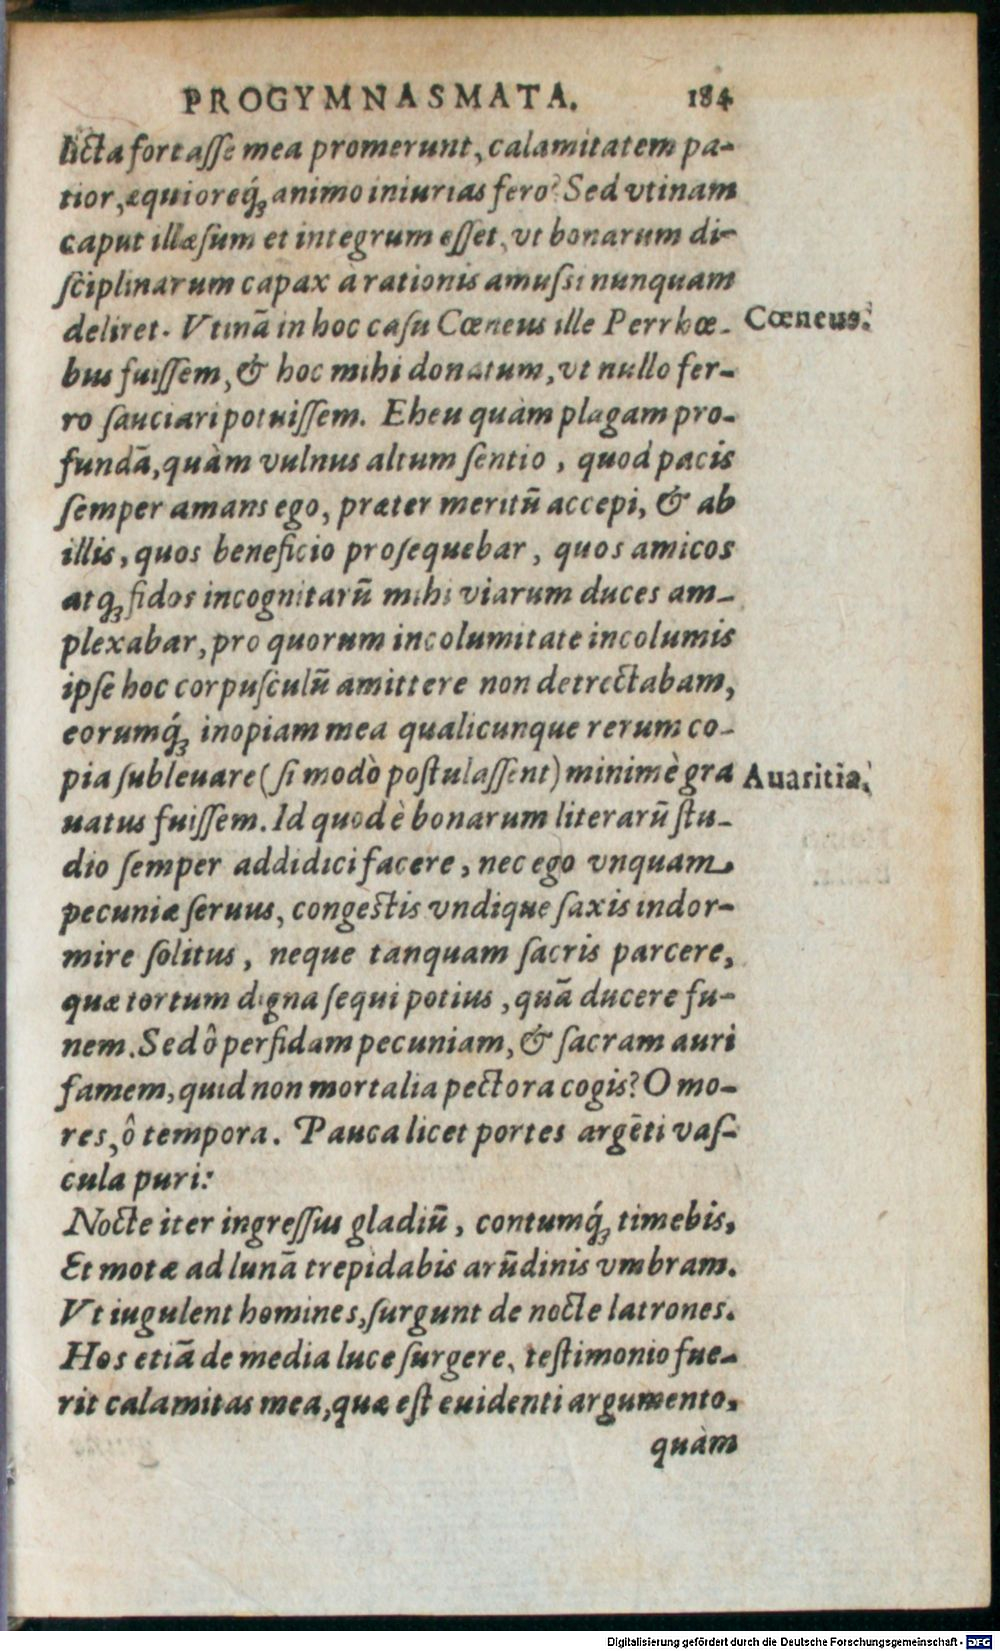 PROGYMNASMATA. 184
licta fortasse mea promerunt, calamitatem pa-
tior, æquioreq́ꝫ animo iniurias fero? Sed vtinam
caput illæsum et integrum esset, vt bonarum di-
sciplinarum capax a rationis amussi nunquam
deliret. Vtinā in hoc casu Cœneus ille Perrhœ-
Cœneus.
bus fuissem, & hoc mihi donatum, vt nullo fer-
ro sauciari potuissem. Eheu quàm plagam pro-
fundā, quàm vulnus altum sentio, quod pacis
semper amans ego, præter meritū accepi, & ab
illis, quos beneficio prosequebar, quos amicos
atqꝫ fidos incognitarū mihi viarum duces am-
plexabar, pro quorum incolumitate incolumis
ipse hoc corpusculū amittere non detrectabam,
eorumq́ꝫ inopiam mea qualicunque rerum co-
pia subleuare (si modò postulassent) minimè gra
Auaritia.
uatus fuissem. Id quod è bonarum literarū stu-
dio semper addidici facere, nec ego vnquam
pecuniæ seruus, congestis vndique saxis indor-
mire solitus, neque tanquam sacris parcere,
quæ tortum digna sequi potius, quā ducere fu-
nem. Sed ô perfidam pecuniam, & sacram auri
famem, quid non mortalia pectora cogis? O mo-
res, ô tempora. Pauca licet portes argēti vas-
cula puri:
Nocte iter ingressus gladiū, contumq́ꝫ timebis,
Et motæ ad lunā trepidabis arūdinis vmbram.
Vt iugulent homines, surgunt de nocte latrones.
Hos etiā de media luce surgere, testimonio fue-
rit calamitas mea, quæ est euidenti argumento,
quàm
Digitalisierung gefördert durch die Deutsche Forschungsgemeinschaft - DFG